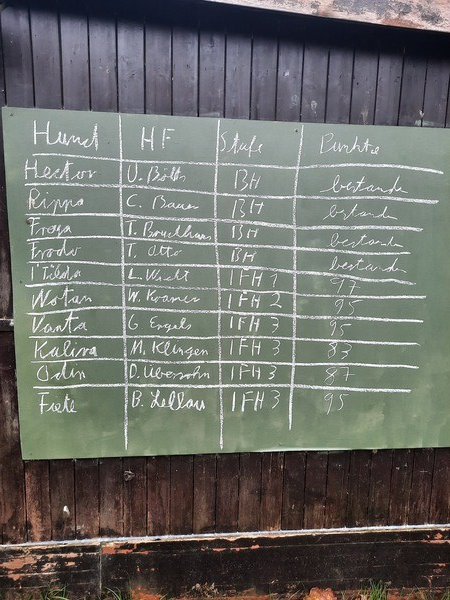 Hund HF Stufe Punkte
Hector U. Bolts BH bestanden
Rippo C. Bauer BH bestanden
Froya T. BH bestanden
Frodo T. Otto BH bestanden
Tilda L. Wacht IFH 1 97
Wotan W. Kramer IFH 2 95
Vanta G. Engels IFH 3 95
Kalina M. Klingen IFH 3 83
Odin D. Übersohn IFH 3 87
Fiete B. IFH 3 95